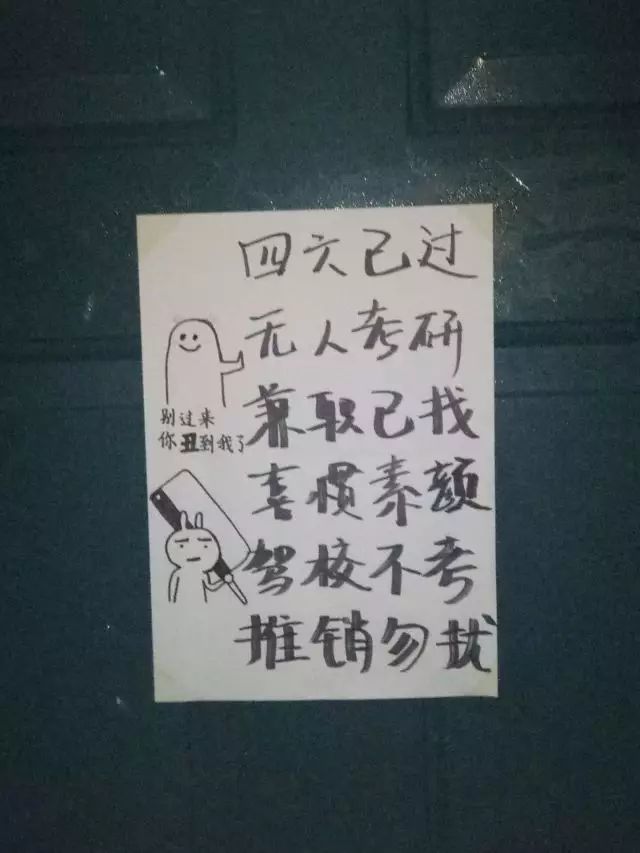 四六已过
无人考研
兼职已找
喜惯素颜
驾校不考
推销勿扰
别过来
你丑到我了